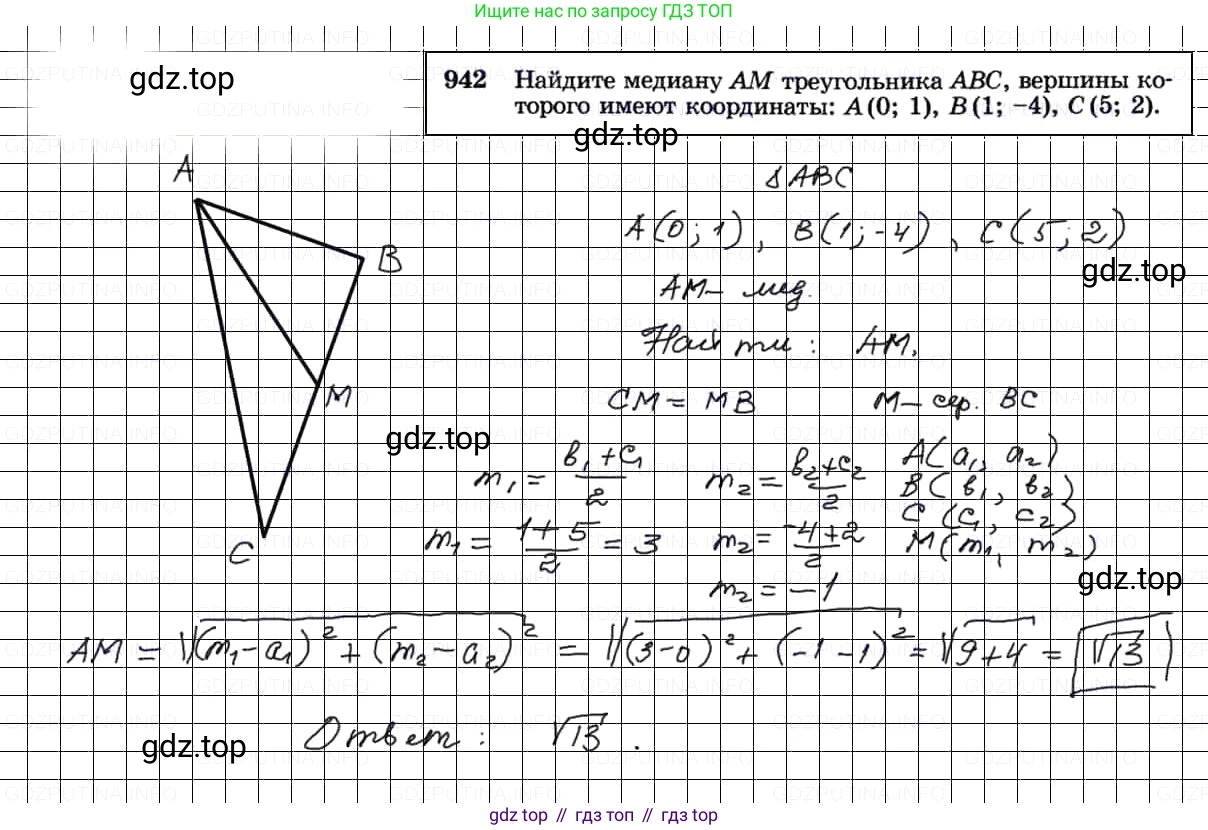 Ищите нас по запросу ГДЗ ТОП
gdz.top
942 Найдите медиану AM треугольника ABC, вершины ко-
торого имеют координаты: A(0; 1), B(1; −4), C(5; 2).
gdz.top
A
Δ ABC
A(0; 1), B(1; -4), C(5; 2)
B
gdz.top
AM – мед.
Найти: AM.
M
CM = MB M – сер. BC
gdz.top
m₁ = (в₁ + c₁)/2 m₂ = (в₂ + c₂)/2 A(a₁, a₂)
B(в₁, в₂)
C(c₁, c₂)
C
m₁ = (1 + 5)/2 = 3 m₂ = (-4 + 2)/2 M(m₁, m₂)
gdz.top
m₂ = -1
AM = √((m₁ - a₁)² + (m₂ - a₂)²) = √((3-0)² + (-1-1)²) = √(9+4) = √13
Ответ: √13.
gdz.top
gdz top // гдз топ // гдз top
GDZPUTINA.INFO